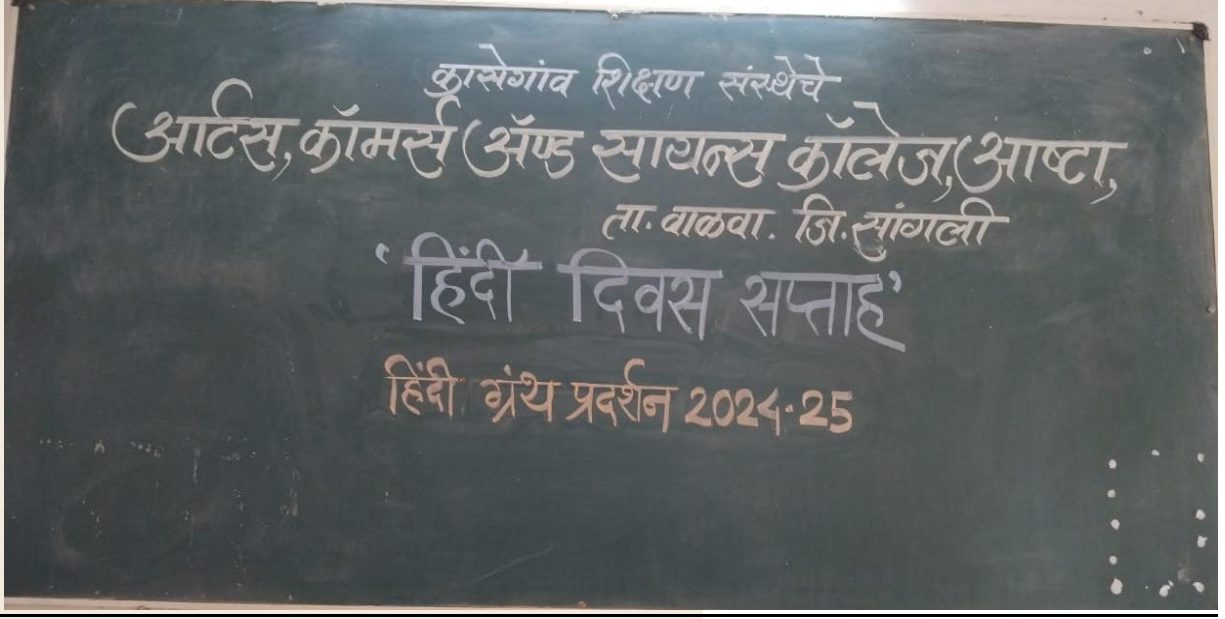 कासेगांव शिक्षण संस्थेचे
आर्टस्, कॉमर्स अॅण्ड सायन्स कॉलेज, आष्टा,
ता. वाळवा. जि. सांगली
‘हिंदी दिवस सप्ताह’
हिंदी ग्रंथ प्रदर्शन 2024-25